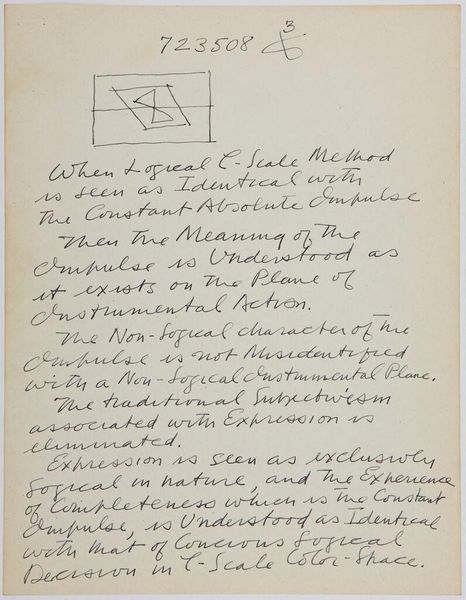 723508 3
When Logical C-Scale Method
is seen as Identical with
the Constant Absolute Impulse
Then the Meaning of the
Impulse is Understood as
it exists on the Plane of
Instrumental Action.
The Non-Logical character of the
Impulse is not Misidentified
with a Non-Logical Instrumental Plane.
The traditional Subjectivism
associated with Expression is
eliminated.
Expression is seen as exclusively
Logical in nature, and the Experience
of Completeness which is the Constant
Impulse, is Understood as Identical
with that of Concious Logical
Decision in C-Scale Color-Space.